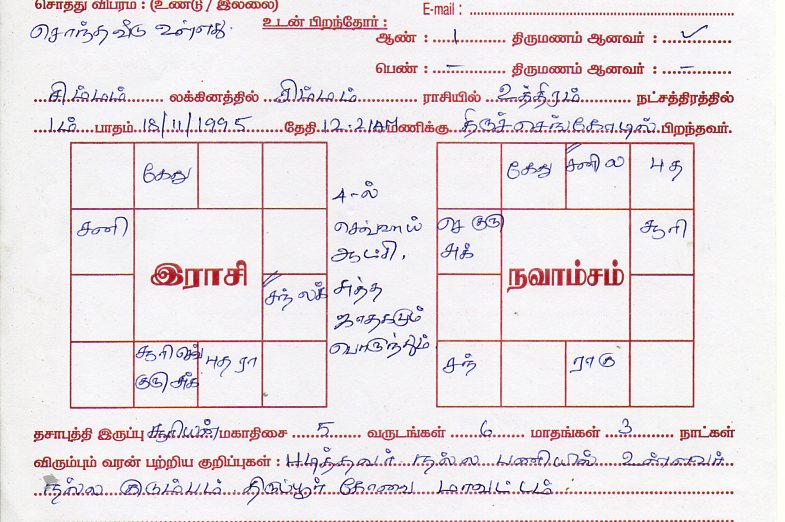 சொத்து விபரம் : (உண்டு / இல்லை)
E-mail :
சொந்த வீடு உள்ளது.
உடன் பிறந்தோர் :
ஆண் : 1 திருமணம் ஆனவர் : ✓
பெண் : – திருமணம் ஆனவர் : –
சிம்மம் லக்கினத்தில் சிம்மம் ராசியில் உத்திரம் நட்சத்திரத்தில்
1ம் பாதம் 18/11/1995 தேதி 12.21AM மணிக்கு திருச்செங்கோட்டில் பிறந்தவர்.
கேது
சனி
இராசி
சந் லக்
சூரி செவ்
குரு சுக்
புத ரா
4-ல்
செவ்வாய்
ஆட்சி,
சுத்த
ஜாதகமும்
பொருந்தும்.
கேது சனி ல புத
செ குரு
சுக்
சூரி
நவாம்சம்
சந் ராகு
தசாபுத்தி இருப்பு சூரியன் மகாதிசை 5 வருடங்கள் 6 மாதங்கள் 3 நாட்கள்
விரும்பும் வரன் பற்றிய குறிப்புகள் : படித்தவர் நல்ல பணியில் உள்ளவர்
நல்ல குடும்பம் திருப்பூர் கோவை மாவட்டம்